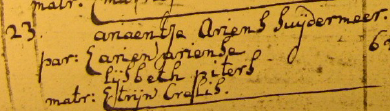 matr:
23. ariaentje Ariens suijdermeer.
par: { arien ariense 6
lijsbeth Piters
matr: Etrijn Crelis.